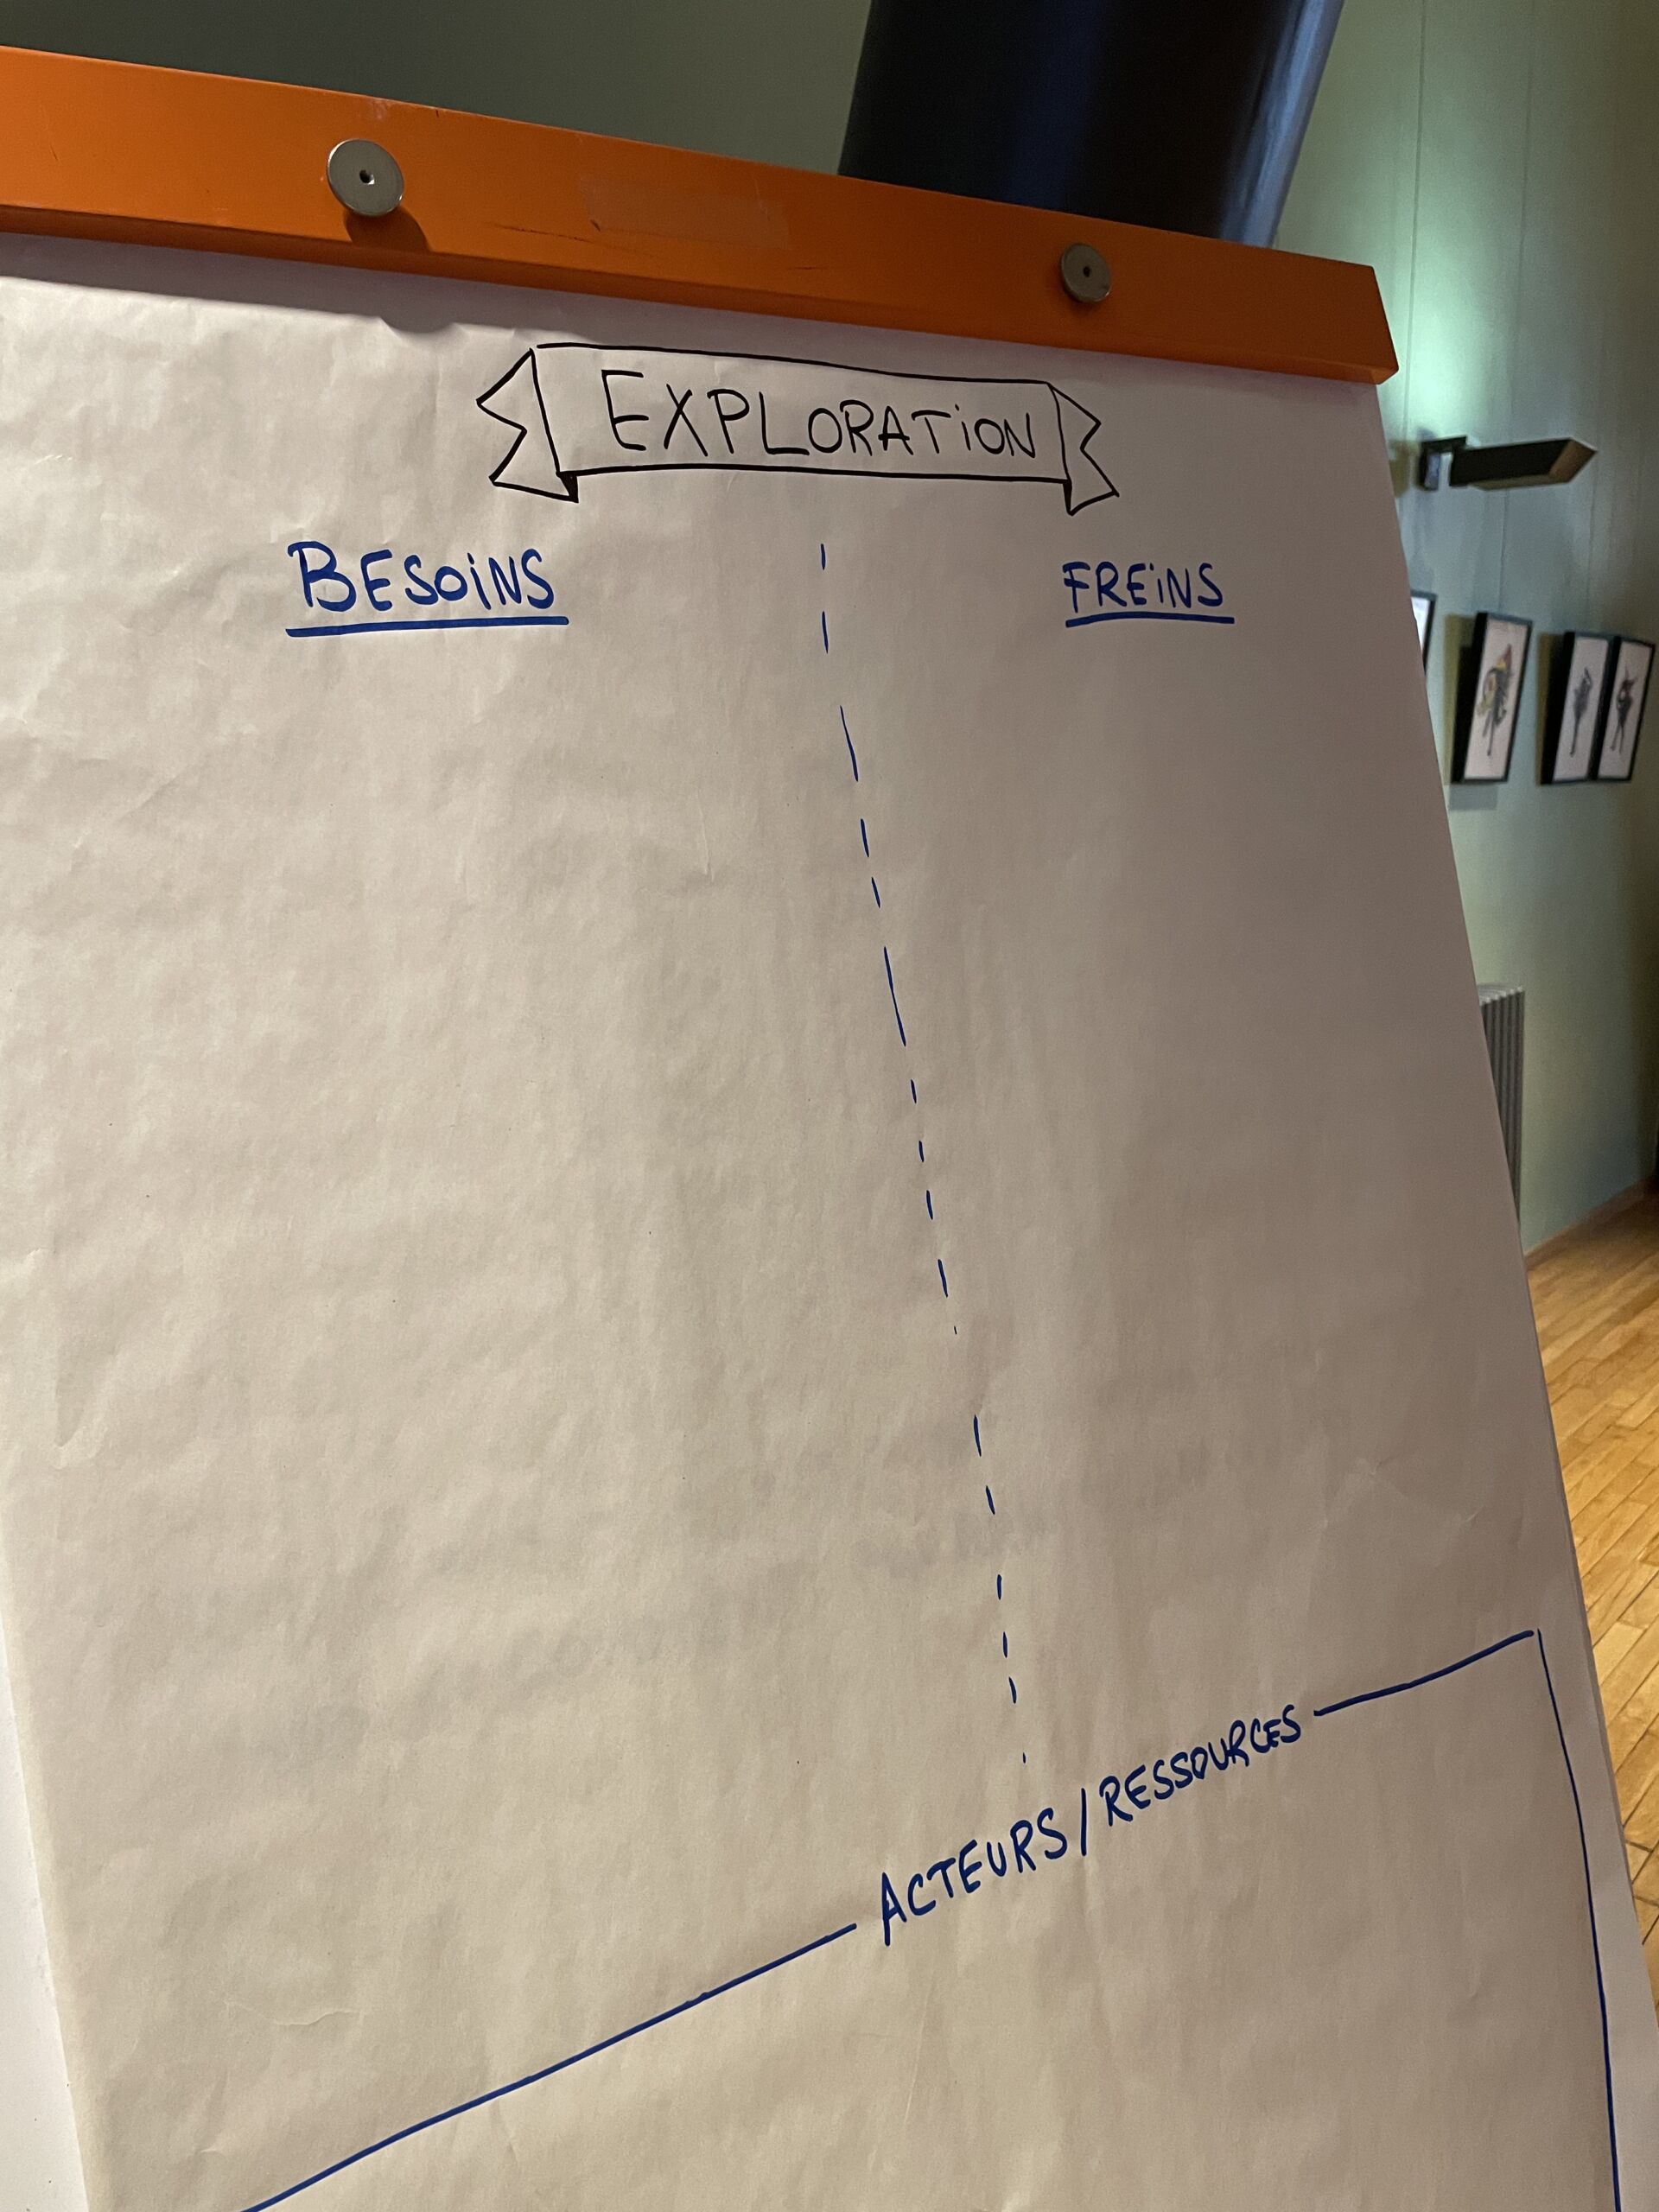 EXPLORATION
BESOINS
FREINS
ACTEURS/RESSOURCES